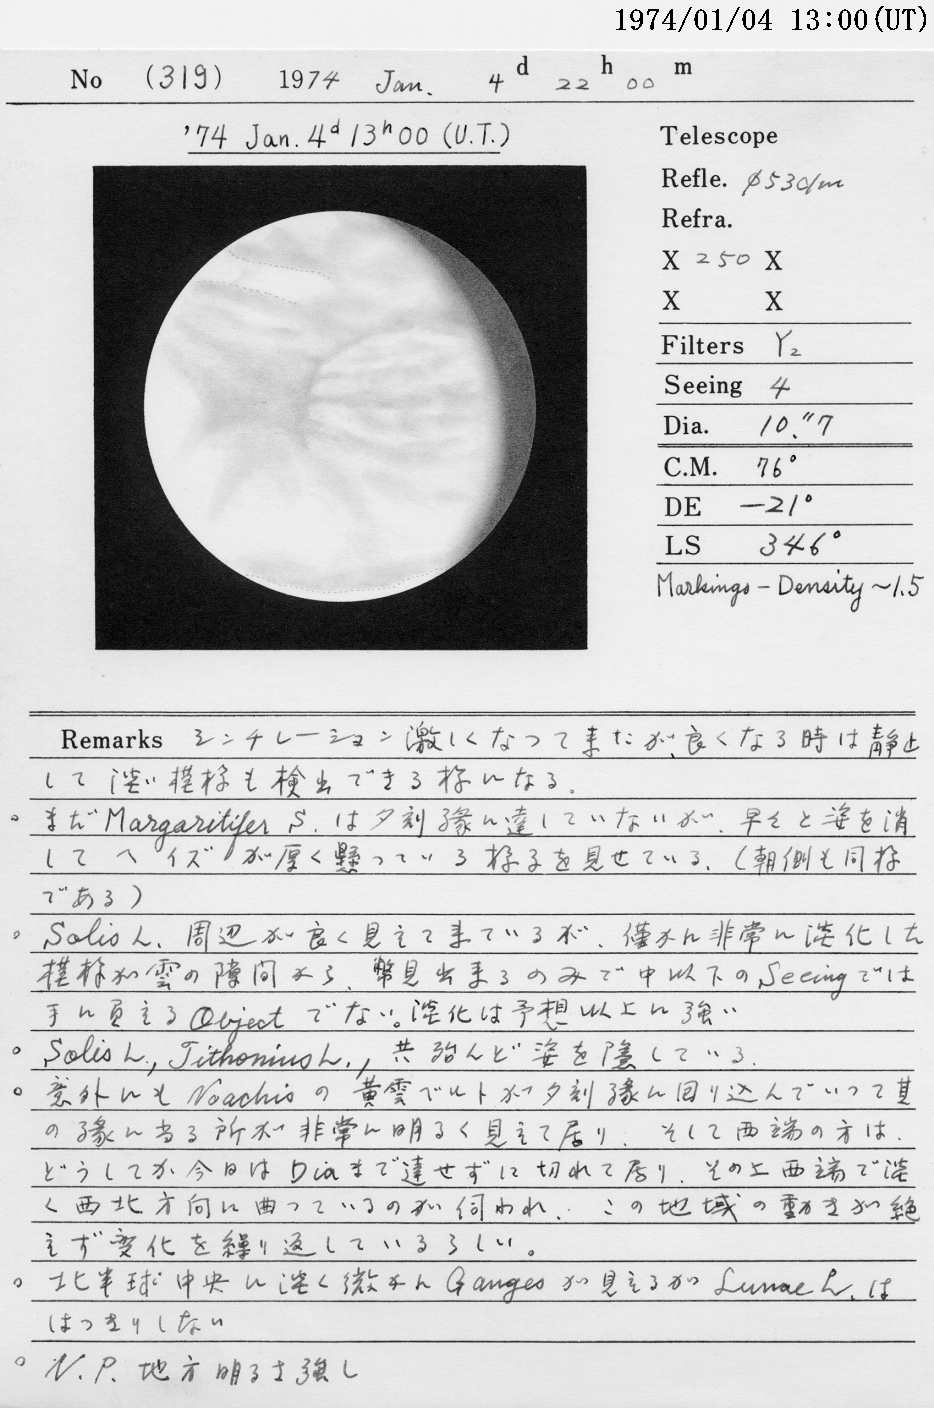 1974/01/04 13:00(UT)
No (319) 1974 Jan. 4 d 22 h 00 m
'74 Jan. 4d 13h 00 (U.T.)
Telescope
Refle. φ530m/m
Refra.
X 250 X
X X
Filters Y2
Seeing 4
Dia. 10."7
C.M. 76°
DE -21°
LS 346°
Markings - Density ~1.5
Remarks シンチレーション激しくなってきたが、良くなる時は静止
して淡い模様も検出できる様になる.
。まだMargaritifer S. は夕刻縁に達していないが、早々と姿を消
してヘイズが厚く懸っている様子を見せている.(朝側も同様
である)
。Solis L. 周辺が良く見えて来ているが、僅かに非常に淡化した
模様が雲の隙間から、散見出来るのみで中以下のSeeingでは
手に負えるObjectでない。淡化は予想以上に強い
。Solis L., Tithonius L., 共殆んど姿を隠している.
。意外にもNoachisの黄雲ベルトが夕刻縁に回り込んでいって其
の縁に当る所が非常に明るく見えて居り、そして西端の方は、
どうしてか今日はDiaまで達せずに切れて居り、その上西端で淡
く西北方向に曲っているのが伺われ、この地域の動きが絶
えず変化を繰り返しているらしい。
。北半球中央に淡く微かにGangesが見えるがLunae L. は
はっきりしない
。N.P. 地方明るさ強し